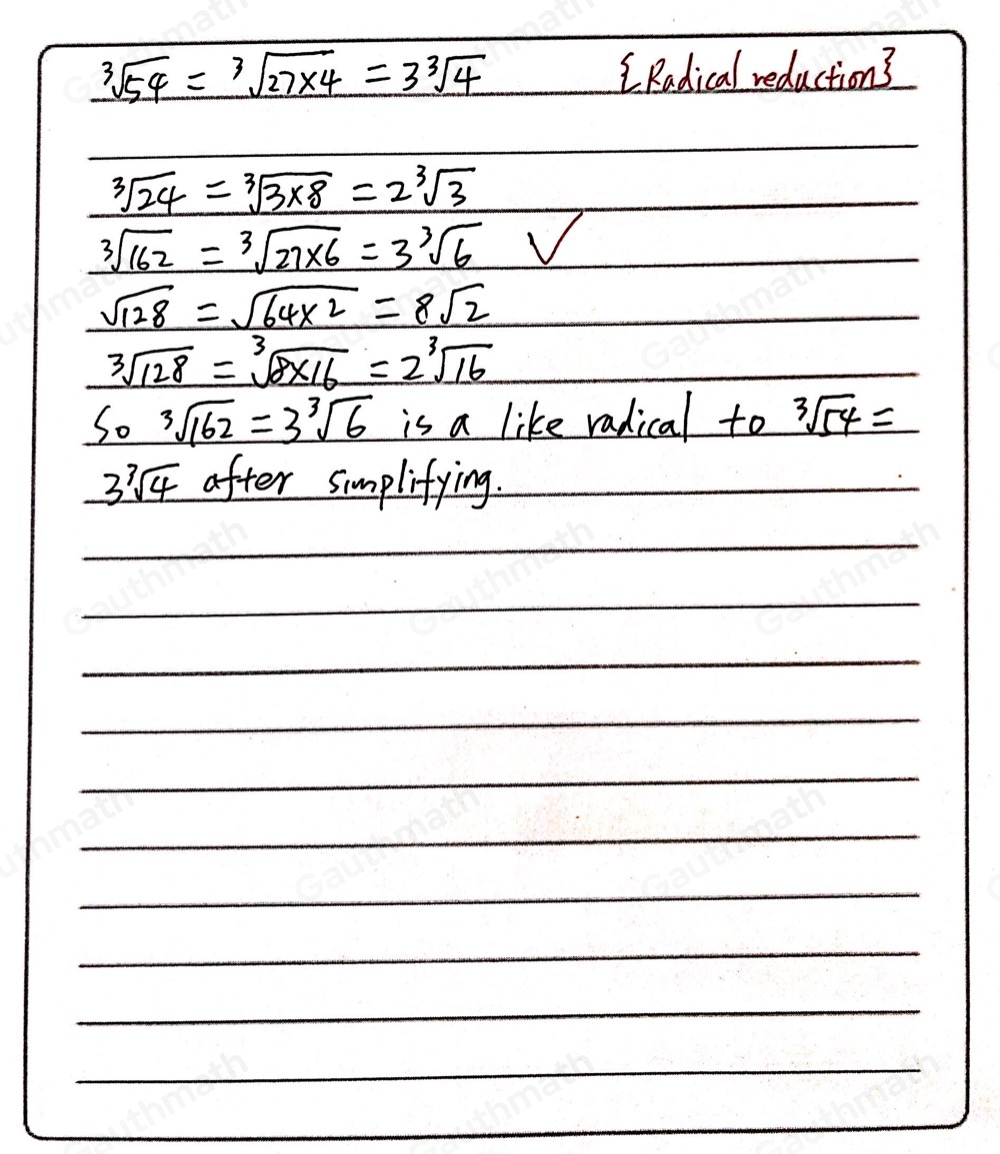 ∛54 = ∛27×4 = 3∛4 {Radical reduction}
∛24 = ∛3×8 = 2∛3
∛162 = ∛27×6 = 3∛6 ✓
√128 = √64×2 = 8√2
∛128 = ∛8×16 = 2∛16
So ∛162 = 3∛6 is a like radical to ∛54 =
3∛4 after simplifying.
Gauthmath